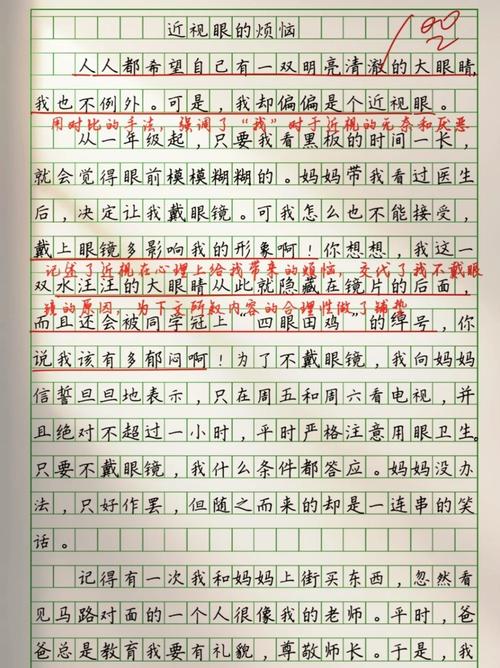 近视眼的烦恼
人人都希望自己有一双明亮清澈的大眼睛，
我也不例外。可是，我却偏偏是个近视眼。
用对比的手法，强调了“我”对于近视的无奈和厌恶
从一年级起，只要我看黑板的时间一长，
就会觉得眼前模模糊糊的。妈妈带我看过医生
后，决定让我戴眼镜。可我怎么也不能接受，
戴上眼镜多影响我的形象啊！你想想，我这一
记述了近视在心理上给我带来的烦恼，交代了我不戴眼
双水汪汪的大眼睛从此就隐藏在镜片的后面，
镜的原因，为下文所叙内容的合理性做了铺垫
而且还会被同学冠上“四眼田鸡”的绰号，你
说我该有多郁闷啊！为了不戴眼镜，我向妈妈
信誓旦旦地表示，只在周五和周六看电视，并
且绝对不超过一小时，平时严格注意用眼卫生。
只要不戴眼镜，我什么条件都答应。妈妈没办
法，只好作罢，但随之而来的却是一连串的笑
话。
记得有一次我和妈妈上街买东西，忽然看
见马路对面的一个人很像我的老师。平时，爸
爸总是教育我要有礼貌，尊敬师长。于是，我